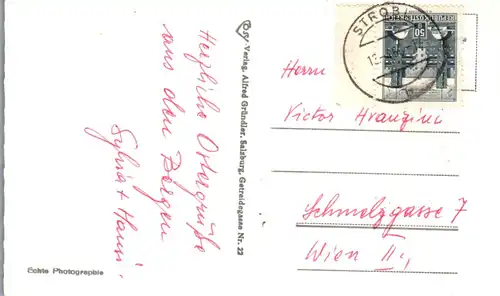 Herzliche Ostergrüße
aus den Bergen
Sylvia + Hansi
Echte Photographie
-Verlag, Alfred Gründler, Salzburg, Getreidegasse Nr. 22
STROBL
REPUBLIK ÖSTERREICH
50
Herrn
Victor
Schmelzgasse 7
Wien II.,